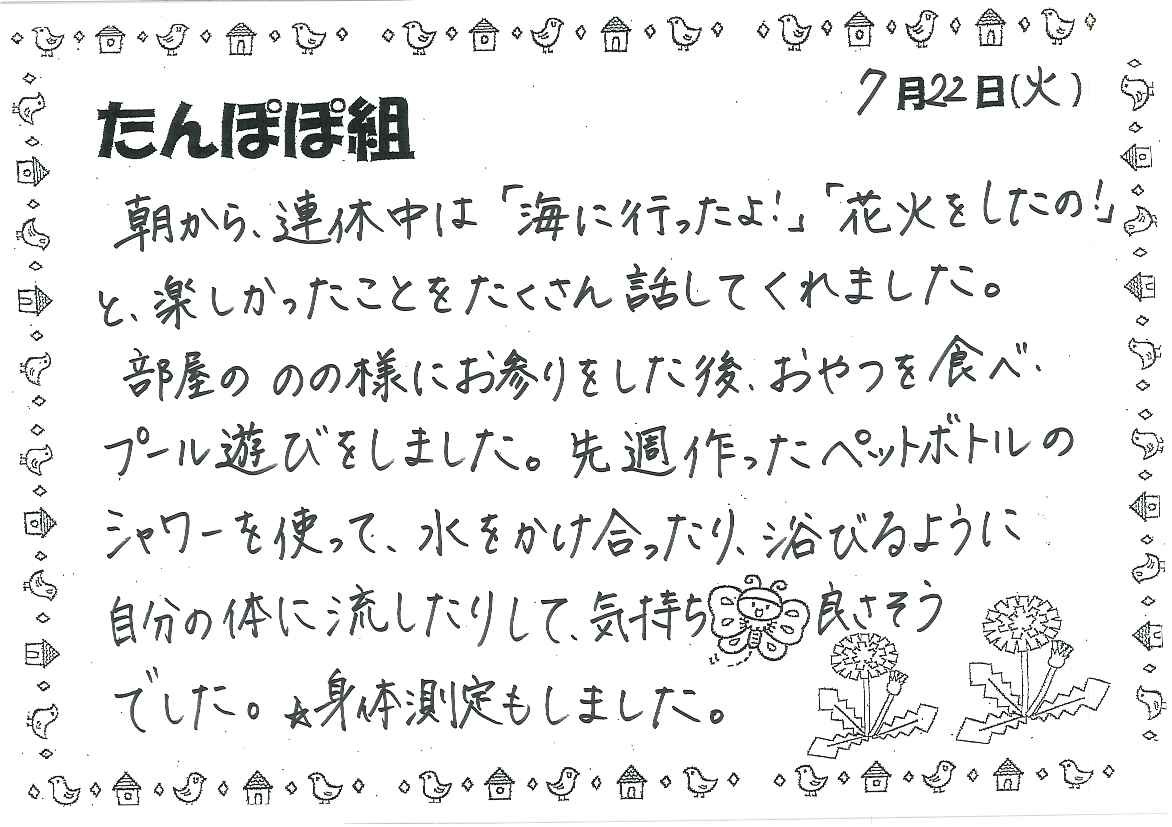 7月22日(火)
たんぽぽ組
朝から、連休中は「海に行ったよ!」「花火をしたの!」
と、楽しかったことをたくさん話してくれました。
部屋の のの様にお参りをした後、おやつを食べ、
プール遊びをしました。先週作ったペットボトルの
シャワーを使って、水をかけ合ったり、浴びるように
自分の体に流したりして、気持ち良さそう
でした。☆身体測定もしました。